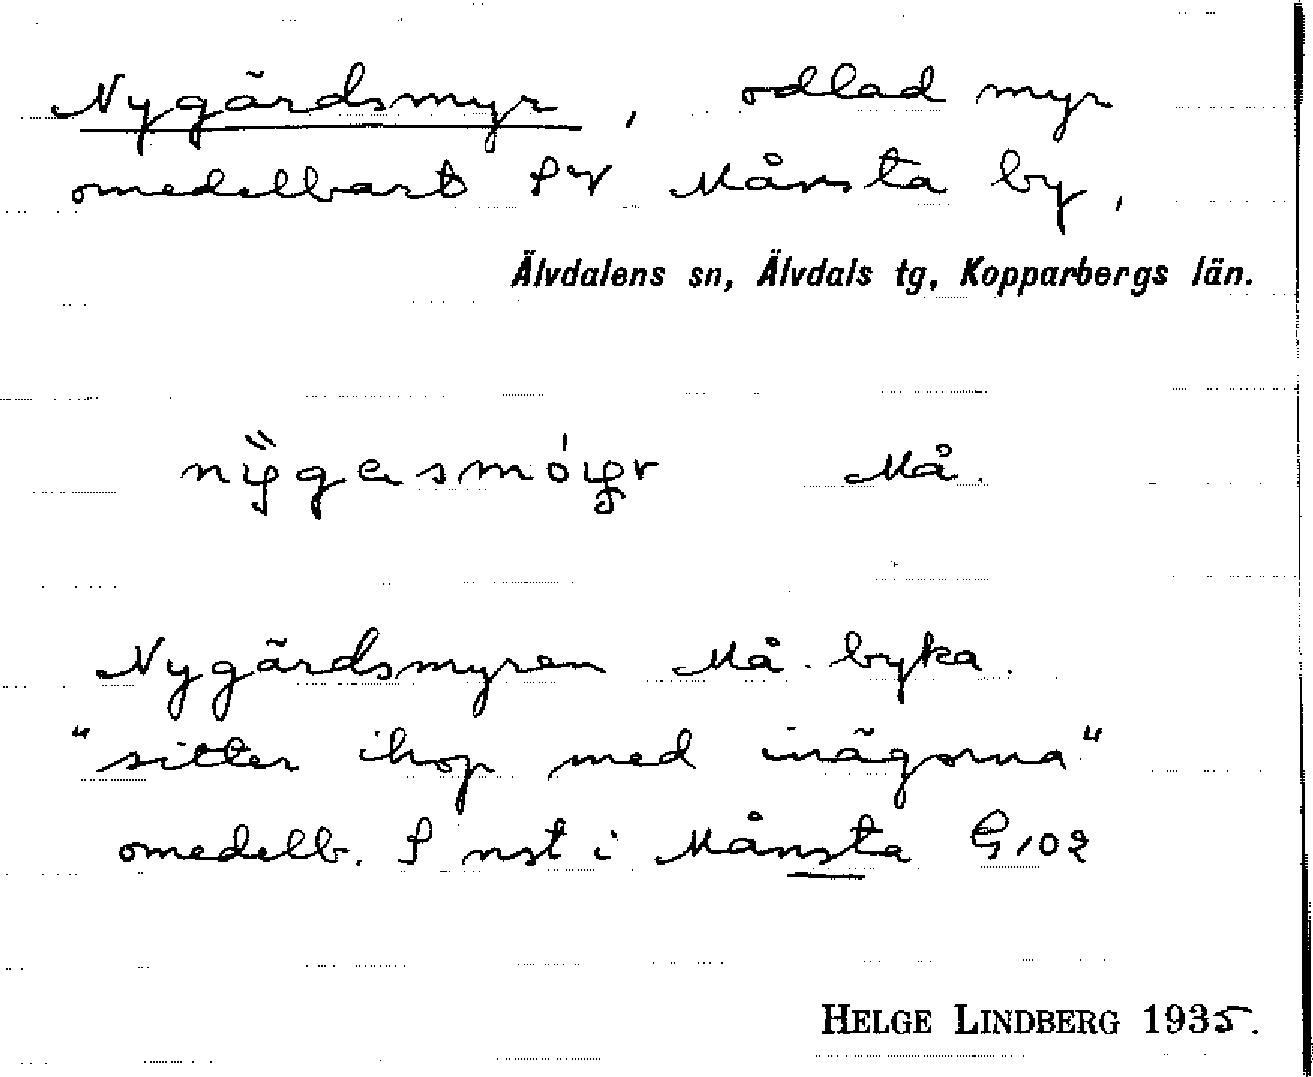 Nygårdsmyr, odlad myr
omedelbart SV Månsta by,
Älvdalens sn, Älvdals tg, Kopparbergs län.
Må.
Nygårdsmyren Må. byka.
"sitter ihop med inägorna"
omedelb. S nst i Månsta G 102
HELGE LINDBERG 1935.